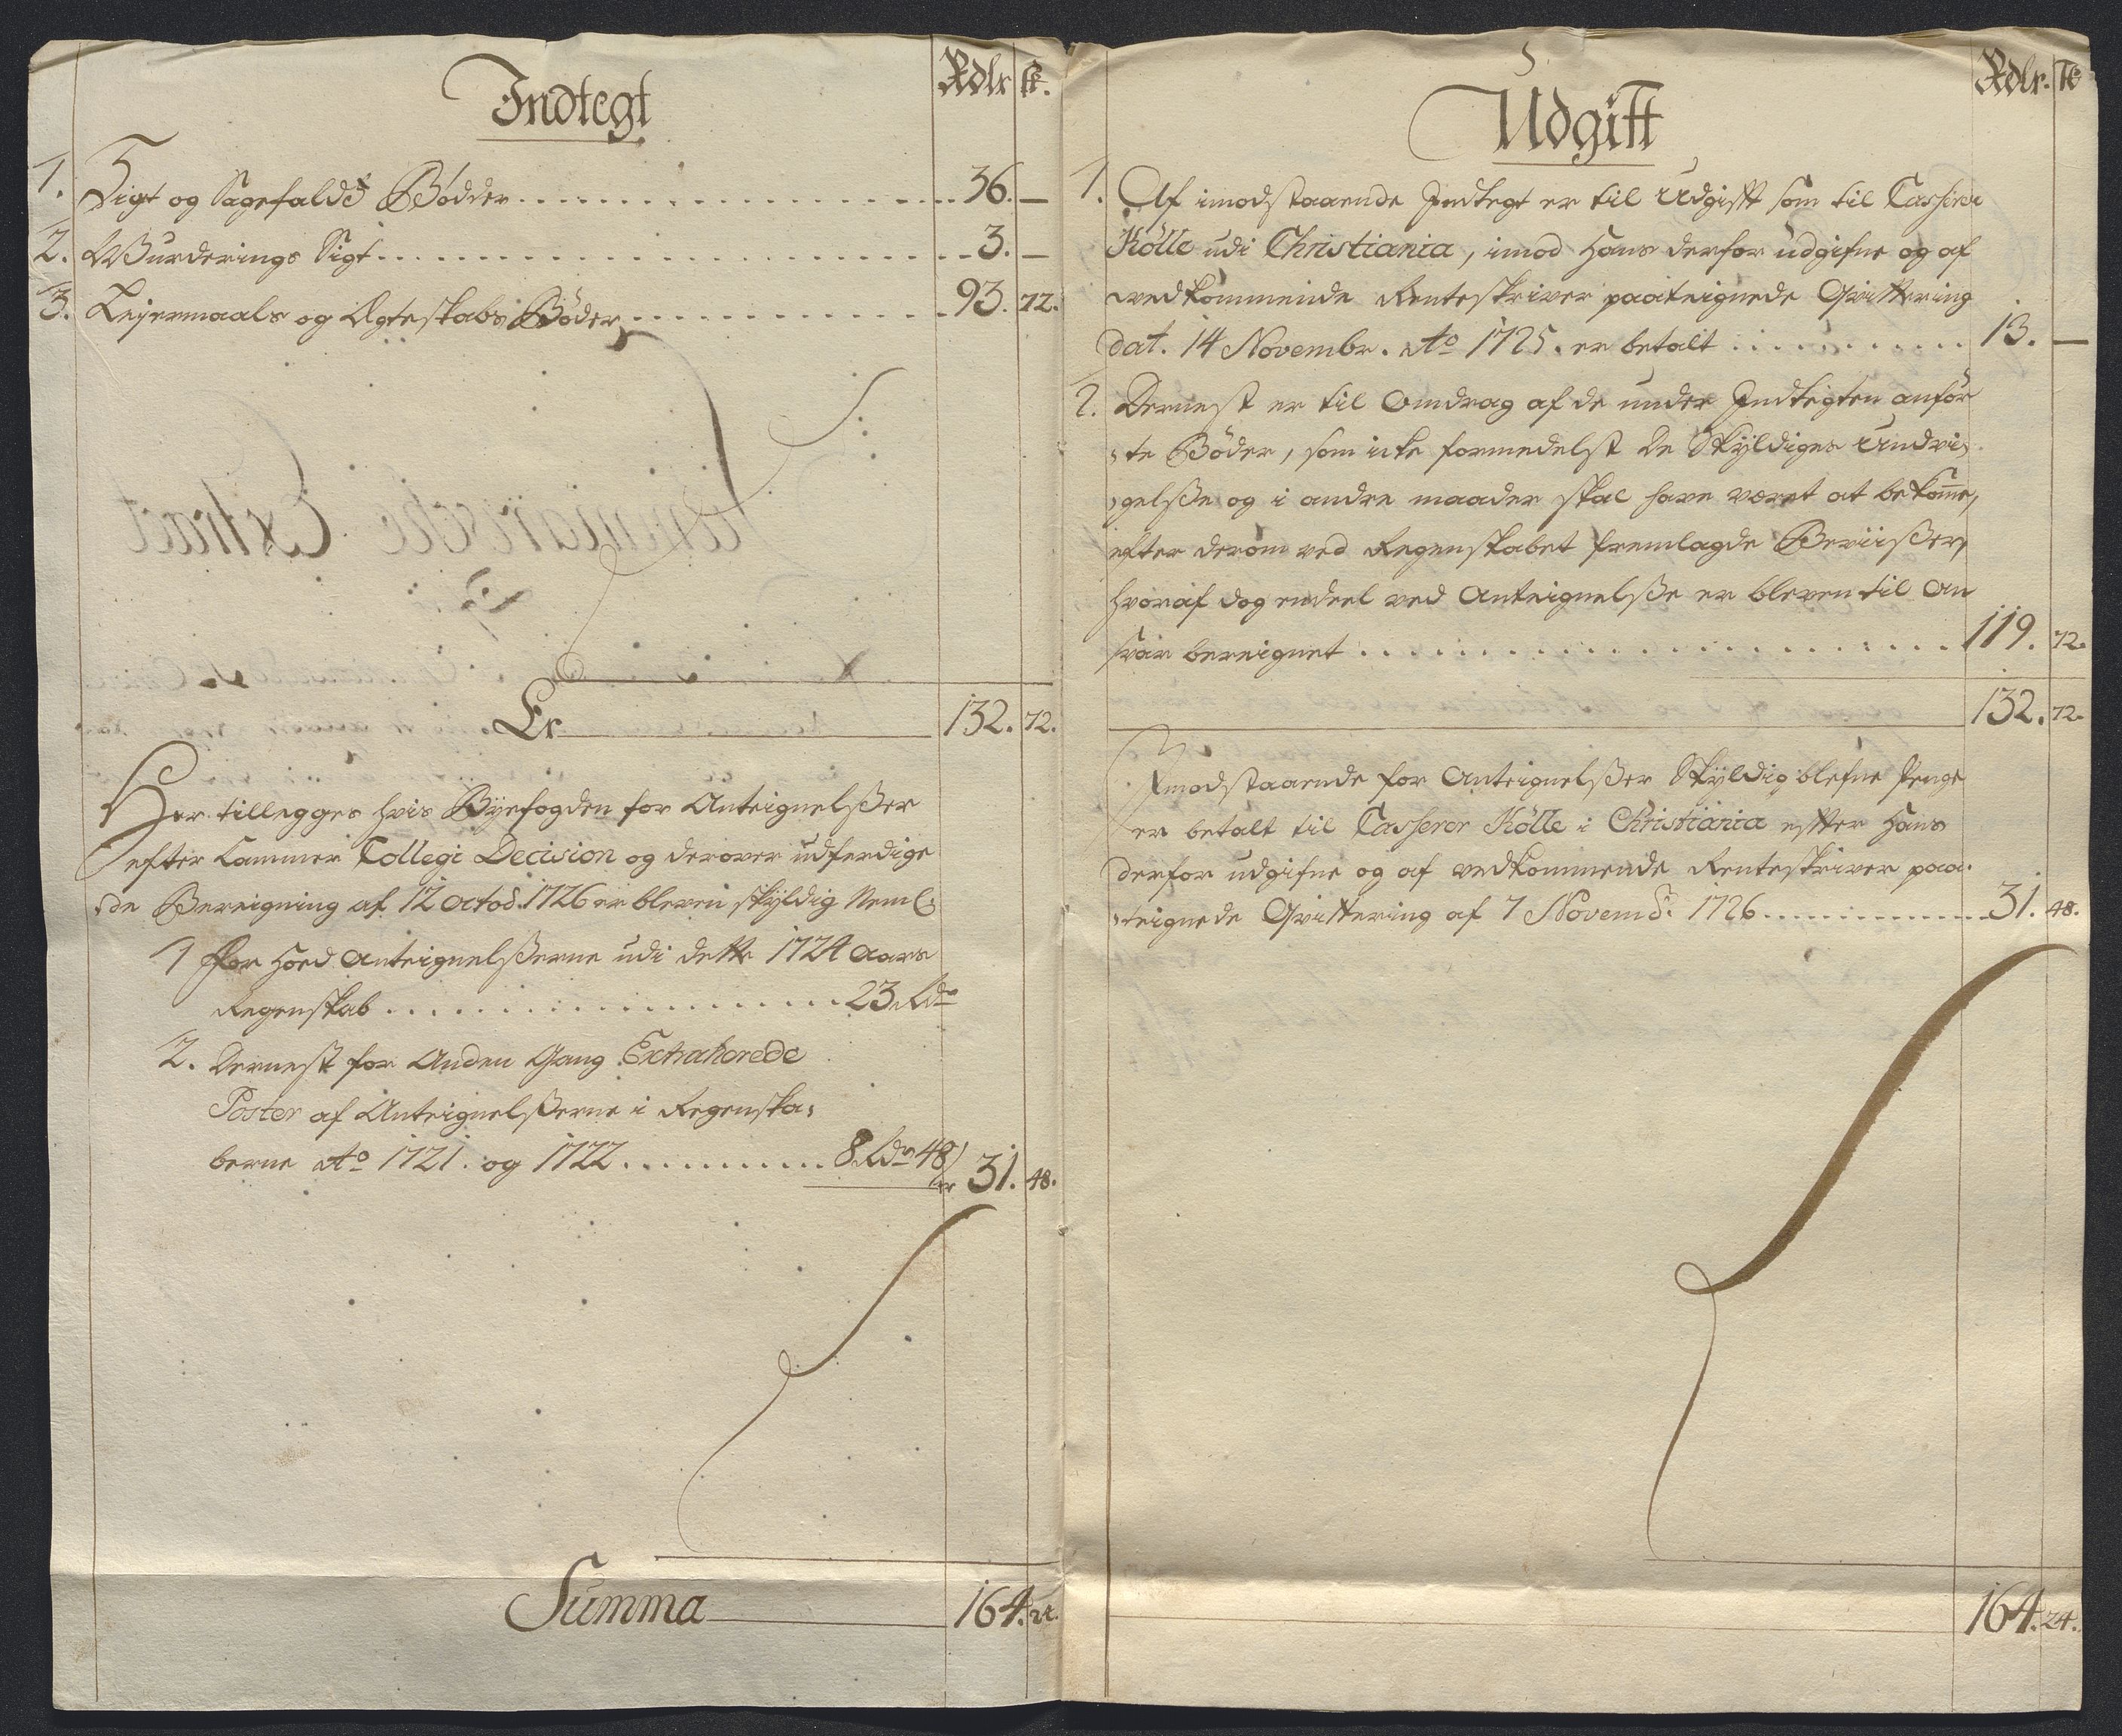 Indtegt
Rdlr
ſk.
1. Sigt og Sagefalds Bødder 36. —
2. Wurderings Sigt 3. —
3. Leyermaals og Ægteskabs Bøder 93. 72.
Er 132. 72.
Her tillegges hvis Byefogden for Anteignelßer
efter Cammer Collegi Decision og derover udferdige
de Bereigning af 12 octob. 1726 er bleven skyldig Neml:
1 For Hoed Anteignelßerne udi dette 1724 Aars
Regenskab 23 Rdr
2. Dernest for Anden Gang Extraherede
Poster af Anteignelßerne i Regenska,
berne Ao 1721. og 1722 8 Rdr 48
er 31. 48.
Summa 164. 24.
Udgift
Rdlr. ſk
1. Af imodstaaende Indtegt er til Udgifft som til Casserer
Kölle udi Christiania, imod Hans derfor udgifne og af
vedkommende Renteskriver paateignede Qvittering
dat. 14 Novembr. Ao 1725. er betalt 13. —
2. Dernest er til Omdrag af de under Indtegten anfør
te Bøder, som icke formedelst De Skyldiges Undvi,
gelße og i andre maader skal have været at bekome,
efter derom ved Regenskabet fremlagde Beviißer,
hvoraf dog endeel ved Anteignelße er bleven til An
svar bereignet 119. 72.
132. 72.
Imodstaaende for Anteignelßer Skyldig blefne Penge
er betalt til Casserer Kölle i Christiania effter Hans
derfor udgifne og af vedkommende Renteskriver paa,
teignede Qvittering af 7 Novemb. 1726 31. 48.
164. 24.